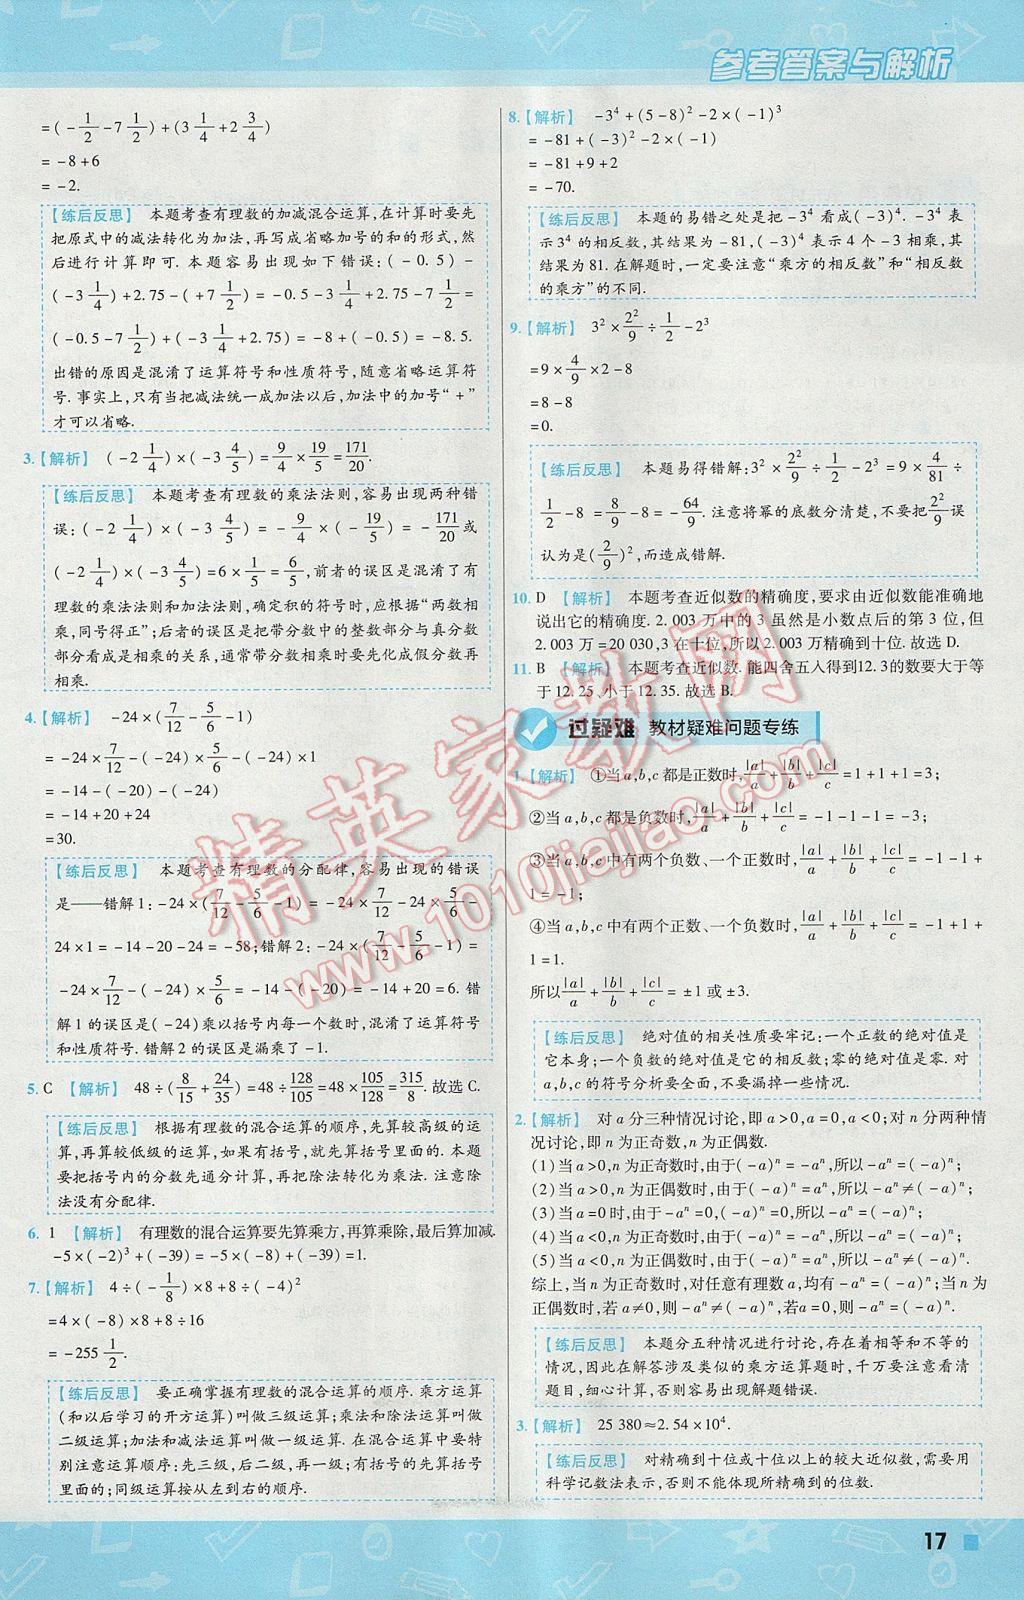 参考答案与解析
=(-1/2-7 1/2)+(3 1/4+2 3/4)
=-8+6
=-2.
【练后反思】 本题考查有理数的加减混合运算,在计算时要先
把原式中的减法转化为加法,再写成省略加号的和的形式,然
后进行计算即可. 本题容易出现如下错误:(-0.5)-
(-3 1/4)+2.75-(+7 1/2)=-0.5-3 1/4+2.75-7 1/2=
(-0.5-7 1/2)+(-3 1/4+2.75)=-8+(-0.5)=-8.5.
出错的原因是混淆了运算符号和性质符号,随意省略运算符
号. 事实上,只有当把减法统一成加法以后,加法中的加号“+”
才可以省略.
3.【解析】 (-2 1/4)×(-3 4/5)=9/4×19/5=171/20.
【练后反思】 本题考查有理数的乘法法则,容易出现两种错
误:(-2 1/4)×(-3 4/5)=-9/4×(-19/5)=-171/20或
(-2 1/4)×(-3 4/5)=6×1/5=6/5,前者的误区是混淆了有
理数的乘法法则和加法法则,确定积的符号时,应根据“两数相
乘,同号得正”;后者的误区是把带分数中的整数部分与真分数
部分看成是相乘的关系,通常带分数相乘时要先化成假分数再
相乘.
4.【解析】 -24×(7/12-5/6-1)
=-24×7/12-(-24)×5/6-(-24)×1
=-14-(-20)-(-24)
=-14+20+24
=30.
【练后反思】 本题考查有理数的分配律,容易出现的错误
是——错解1:-24×(7/12-5/6-1)=-24×7/12-24×5/6-
24×1=-14-20-24=-58;错解2:-24×(7/12-5/6-1)=
-24×7/12-(-24)×5/6=-14-(-20)=-14+20=6. 错
解1的误区是(-24)乘以括号内每一个数时,混淆了运算符号
和性质符号. 错解2的误区是漏乘了-1.
5. C 【解析】 48÷(8/15+24/35)=48÷128/105=48×105/128=315/8. 故选C.
【练后反思】 根据有理数的混合运算的顺序,先算较高级的运
算,再算较低级的运算,如果有括号,就先算括号里面的. 本题
要先把括号内的分数先通分计算,再把除法转化为乘法. 注意除
法没有分配律.
6. 1 【解析】 有理数的混合运算要先算乘方,再算乘除,最后算加减.
-5×(-2)³+(-39)=-5×(-8)+(-39)=1.
7.【解析】 4÷(-1/8)×8+8÷(-4)²
=4×(-8)×8+8÷16
=-255 1/2.
【练后反思】 要正确掌握有理数的混合运算的顺序. 乘方运算
(和以后学习的开方运算)叫做三级运算;乘法和除法运算叫做
二级运算;加法和减法运算叫做一级运算. 在混合运算中要特
别注意运算顺序:先三级,后二级,再一级;有括号的先算括号
里面的;同级运算按从左到右的顺序.
8.【解析】 -3⁴+(5-8)²-2×(-1)³
=-81+(-3)²-2×(-1)
=-81+9+2
=-70.
【练后反思】 本题的易错之处是把-3⁴看成(-3)⁴. -3⁴表
示3⁴的相反数,其结果为-81,(-3)⁴表示4个-3相乘,其
结果为81. 在解题时,一定要注意“乘方的相反数”和“相反数
的乘方”的不同.
9.【解析】 3²×2²/9÷1/2-2³
=9×4/9×2-8
=8-8
=0.
【练后反思】 本题易得错解:3²×2²/9÷1/2-2³=9×4/81÷
1/2-8=8/9-8=-64/9. 注意将幂的底数分清楚,不要把2²/9误
认为是(2/9)²,而造成错解.
10. D 【解析】 本题考查近似数的精确度,要求由近似数能准确地
说出它的精确度. 2.003万中的3虽然是小数点后的第3位,但
2.003万=20 030,3在十位,所以2.003万精确到十位. 故选D.
11. B 【解析】 本题考查近似数. 能四舍五入得到12.3的数要大于等
于12.25,小于12.35. 故选B.
过疑难 教材疑难问题专练
1.【解析】 ①当a,b,c都是正数时,|a|/a+|b|/b+|c|/c=1+1+1=3;
②当a,b,c都是负数时,|a|/a+|b|/b+|c|/c=-1-1-1=-3;
③当a,b,c中有两个负数、一个正数时,|a|/a+|b|/b+|c|/c=-1-1+
1=-1;
④当a,b,c中有两个正数、一个负数时,|a|/a+|b|/b+|c|/c=-1+
1+1=1.
所以|a|/a+|b|/b+|c|/c=±1或±3.
【练后反思】 绝对值的相关性质要牢记:一个正数的绝对值是
它本身;一个负数的绝对值是它的相反数;零的绝对值是零. 对
a,b,c的符号分析要全面,不要漏掉一些情况.
2.【解析】 对a分三种情况讨论,即a>0,a=0,a<0;对n分两种情
况讨论,即n为正奇数,n为正偶数.
(1)当a>0,n为正奇数时,由于(-a)ⁿ=-aⁿ,所以-aⁿ=(-a)ⁿ;
(2)当a>0,n为正偶数时,由于(-a)ⁿ=aⁿ,所以-aⁿ≠(-a)ⁿ;
(3)当a=0时,由于-aⁿ=0,(-a)ⁿ=0,所以-aⁿ=(-a)ⁿ;
(4)当a<0,n为正奇数时,由于(-a)ⁿ=-aⁿ,所以-aⁿ=(-a)ⁿ;
(5)当a<0,n为正偶数时,由于(-a)ⁿ=aⁿ,所以-aⁿ≠(-a)ⁿ.
综上,当n为正奇数时,对任意有理数a,均有-aⁿ=(-a)ⁿ;当n为
正偶数时,若a≠0,则-aⁿ≠(-a)ⁿ,若a=0,则-aⁿ=(-a)ⁿ.
【练后反思】 本题分五种情况进行讨论,存在着相等和不等的
情况,因此在解答涉及类似的乘方运算题时,千万要注意看清
题目,细心计算,否则容易出现解题错误.
3.【解析】 25 380≈2.54×10⁴.
【练后反思】 对精确到十位或十位以上的较大近似数,需要用
科学记数法表示,否则不能体现所精确到的位数.
17
精英家教网
www.1010jiajiao.com